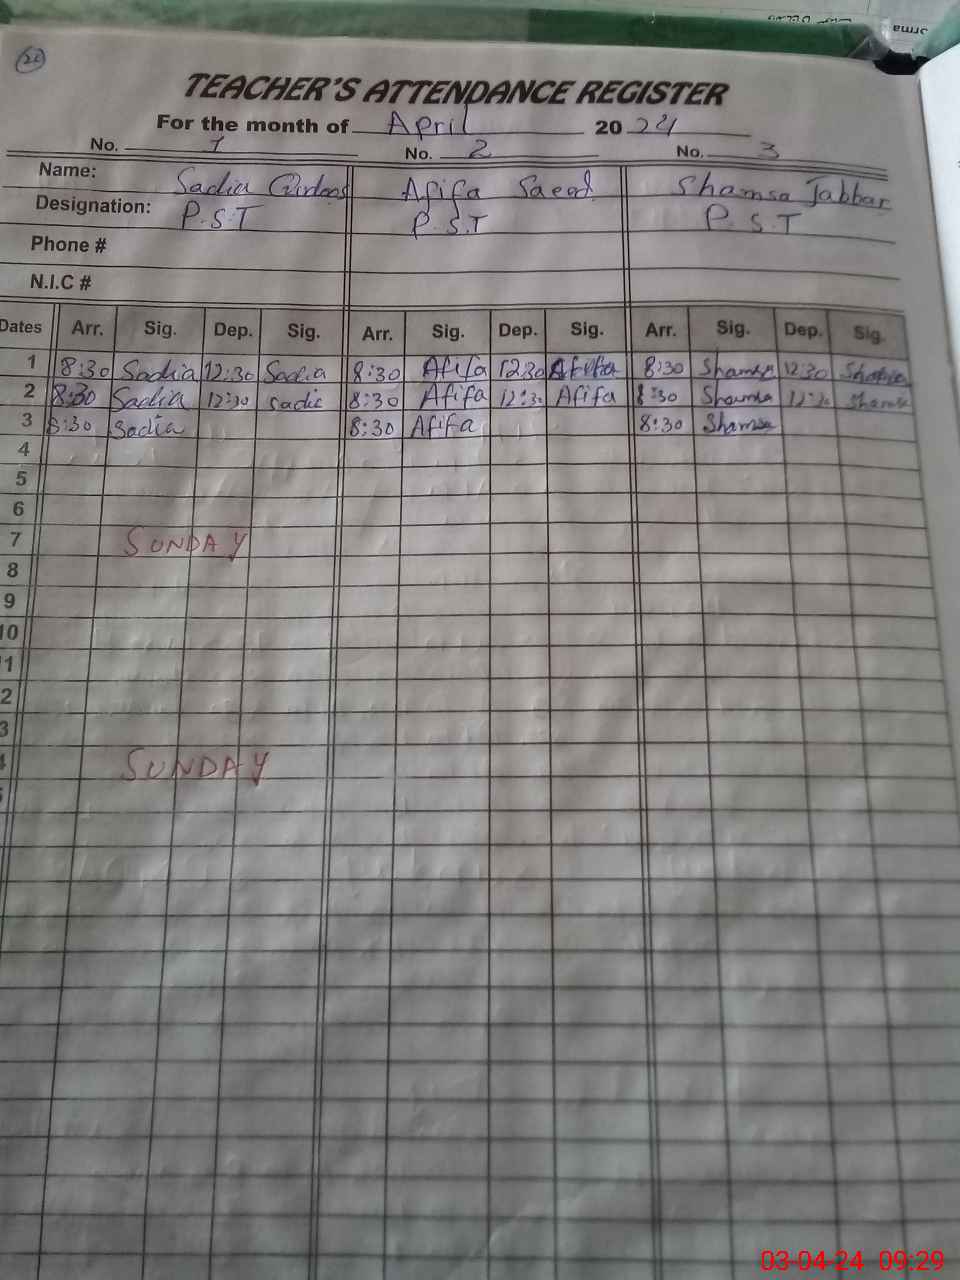 TEACHER'S ATTENDANCE REGISTER
For the month of April 2024
No. 1 No. 2 No. 3
Name: Sadia Afifa Saeed Shamsa Jabbar
Designation: P.S.T P.S.T P.S.T
Phone #
N.I.C #
Dates Arr. Sig. Dep. Sig. Arr. Sig. Dep. Sig. Arr. Sig. Dep. Sig.
1 8:30 Sadia 12:30 Sadia 8:30 Afifa 12:30 Afifa 8:30 Shamsa 12:30 Shamsa
2 8:30 Sadia 12:30 Sadia 8:30 Afifa 12:30 Afifa 8:30 Shamsa 12:30 Shamsa
3 8:30 Sadia 8:30 Afifa 8:30 Shamsa
4
5
6
7 SUNDAY
8
9
10
1
2
3
4 SUNDAY
03-04-24 09:29